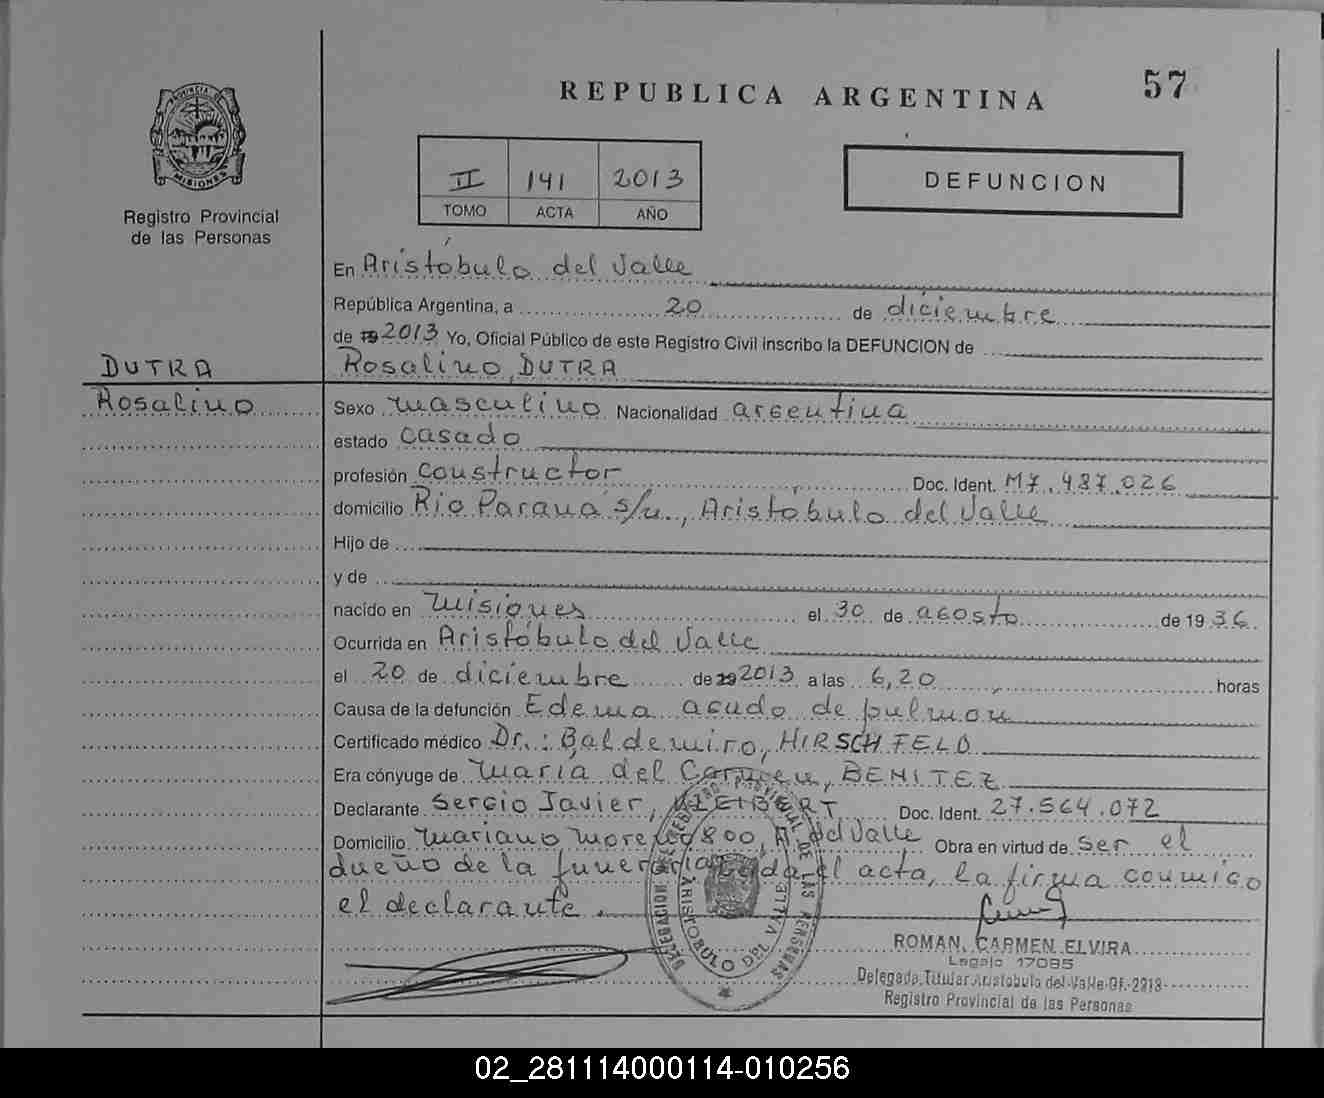 REPUBLICA ARGENTINA
57
PROVINCIA DE
MISIONES
Registro Provincial
de las Personas
II 141 2013
TOMO ACTA AÑO
DEFUNCION
En Aristóbulo del Valle
República Argentina, a 20 de diciembre
de 19 2013 Yo, Oficial Público de este Registro Civil inscribo la DEFUNCION de
Rosalino, DUTRA
DUTRA
Rosalino
Sexo masculino Nacionalidad argentina
estado casado
profesión constructor Doc. Ident. M7.487.026
domicilio Río Paraná s/n., Aristóbulo del Valle
Hijo de
y de
nacido en Misiones el 30 de agosto de 1936
Ocurrida en Aristóbulo del Valle
el 20 de diciembre de 19 2013 a las 6,20 horas
Causa de la defunción Edema agudo de pulmón
Certificado médico Dr.: Baldemiro, HIRSCHFELD
Era cónyuge de María del Carmen, BENITEZ
Declarante Sergio Javier, Doc. Ident. 27.564.072
Domicilio Mariano Moreno 800, A. del Valle Obra en virtud de ser el
dueño de la funeraria el acta, la firma conmigo
el declarante.
DELEGACION REGISTRO PROVINCIAL DE LAS PERSONAS
ARISTOBULO DEL VALLE
ROMAN, CARMEN ELVIRA
Legajo 17095
Delegada Titular Aristobulo del Valle Of. 2918
Registro Provincial de las Personas
02_281114000114-010256